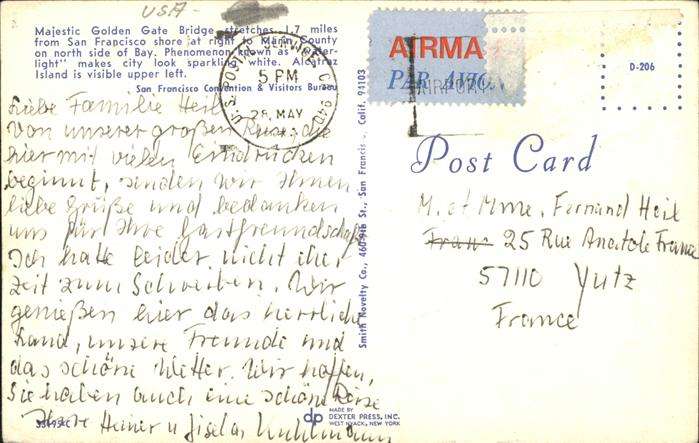 USA-
Majestic Golden Gate Bridge stretches 1.7 miles
from San Francisco shore at right to Marin County
on north side of Bay. Phenomenon known as "water-
light" makes city look sparkling white. Alcatraz
Island is visible upper left.
San Francisco Convention & Visitors Bureau
U.S. POSTAL SERVICE CA 940
5 PM
28 MAY
Liebe Familie Heil
Von unserer großen Reise, die
hier mit vielen Eindrücken
beginnt, senden wir Ihnen
liebe Grüße und bedanken
uns für Ihre Gastfreundschaft
Ich hatte leider nicht eher
Zeit zum Schreiben. Wir
genießen hier das herrliche
Land, unsere Freunde und
das schöne Wetter. Wir hoffen,
Sie haben auch eine schöne Reise
Ihre Heiner u Gisela
Smith Novelty Co., 460-9th St., San Francisco, Calif. 94103
dp
MADE BY
DEXTER PRESS, INC.
WEST NYACK, NEW YORK
AIRMA
PAR AVION
AIRPORT
D-206
Post Card
M. et Mme. Fernand Heil
25 Rue Anatole France
57110 Yutz
France